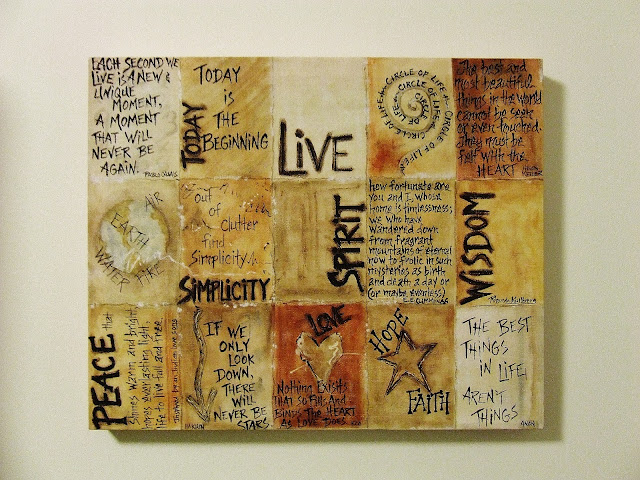 EACH SECOND WE
LIVE IS A NEW &
UNIQUE
MOMENT,
A MOMENT
THAT WILL
NEVER BE
AGAIN.
PABLO CASALS
TODAY
TODAY
IS
THE
BEGINNING
LIVE
CIRCLE OF LIFE CIRCLE OF LIFE CIRCLE OF LIFE CIRCLE OF LIFE
The best and
most beautiful
things in the world
cannot be seen
or even touched.
They must be
felt with the
HEART
AIR
EARTH
WATER
FIRE
Out
of
Clutter
find
Simplicity
SIMPLICITY
SPIRIT
how fortunate are
you and I, whose
home is timelessness;
we who have
wandered down
from fragrant
mountains of eternal
now to frolic in such
mysteries as birth
and death a day or
(or maybe even less)
E.E. CUMMINGS
WISDOM
PEACE that
Shines warm and bright,
everlasting light.
life to live full and free
IF WE
ONLY
LOOK
DOWN,
THERE
WILL
NEVER BE
STARS
LOVE
NOTHING EXISTS
THAT SO FILLS AND
BINDS THE HEART
AS LOVE DOES
HOPE
FAITH
THE BEST
THINGS
IN LIFE
AREN'T
THINGS